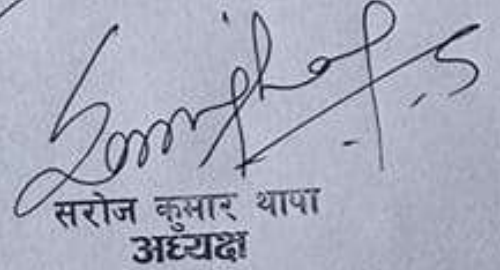 सरोज कुमार थापा
अध्यक्ष